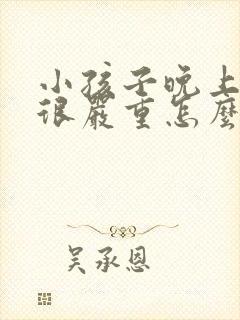 小孩子晚上
很嚴重怎麼
吴承恩